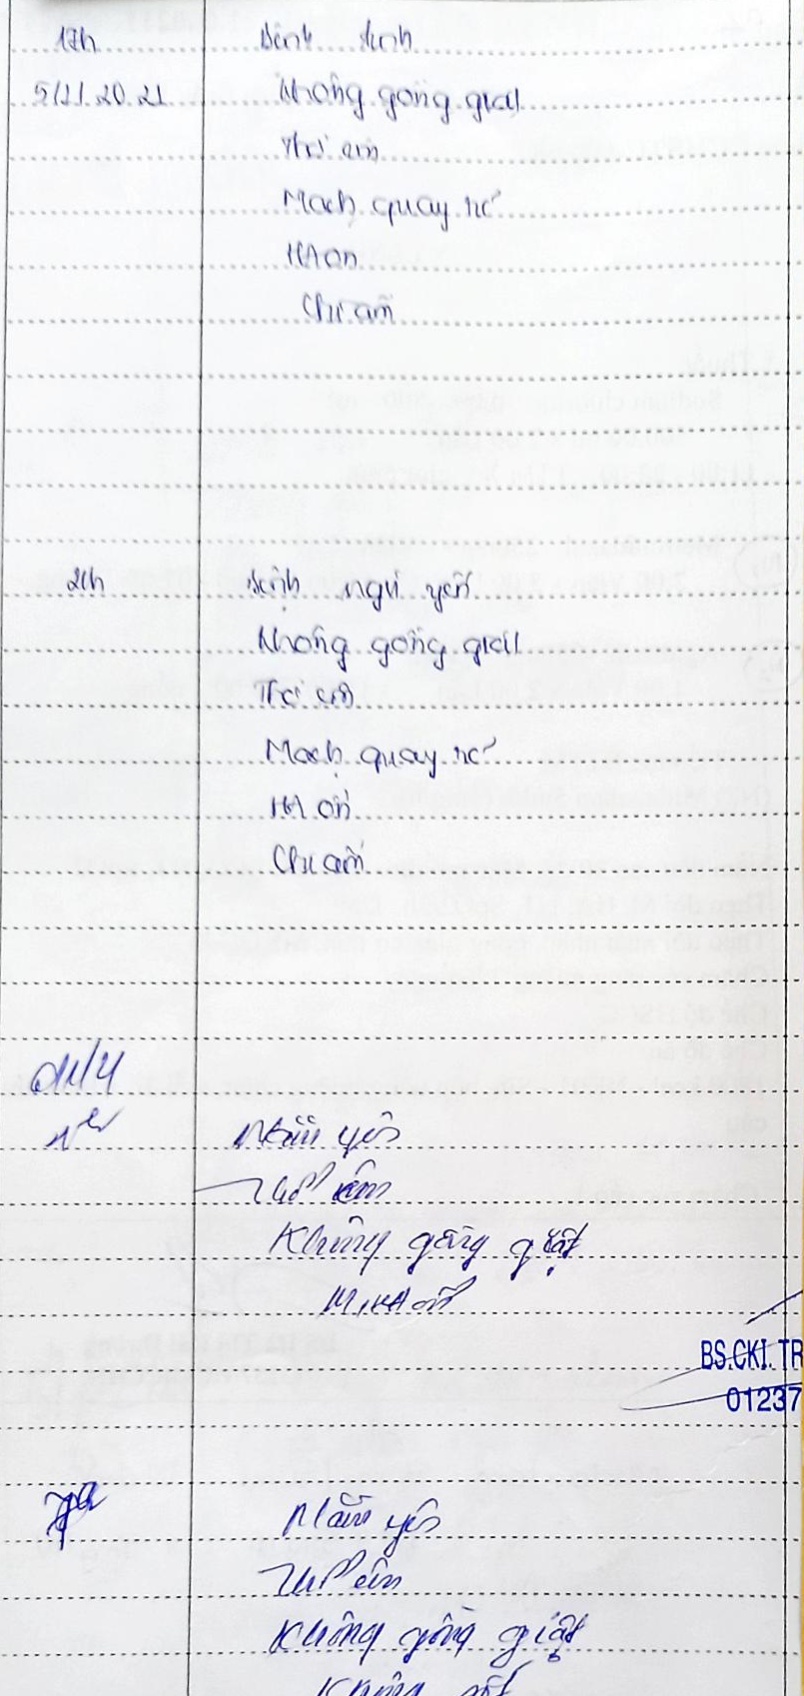 17h Bệnh tỉnh
5/11.20.21 Không gồng giật
Thở êm
Mạch quay rõ
HA ổn
Chi ấm
21h Bệnh ngủ yên
Không gồng giật
Thở êm
Mạch quay rõ
HA ổn
Chi ấm
Nằm yên
Thở êm
Không gồng giật
M, HA ổn
BS.CKI. TR
01237
Nằm yên
Thở êm
Không gồng giật
Không sốt